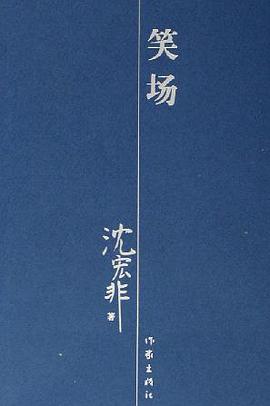 笑场
沈宏非
著
作家出版社